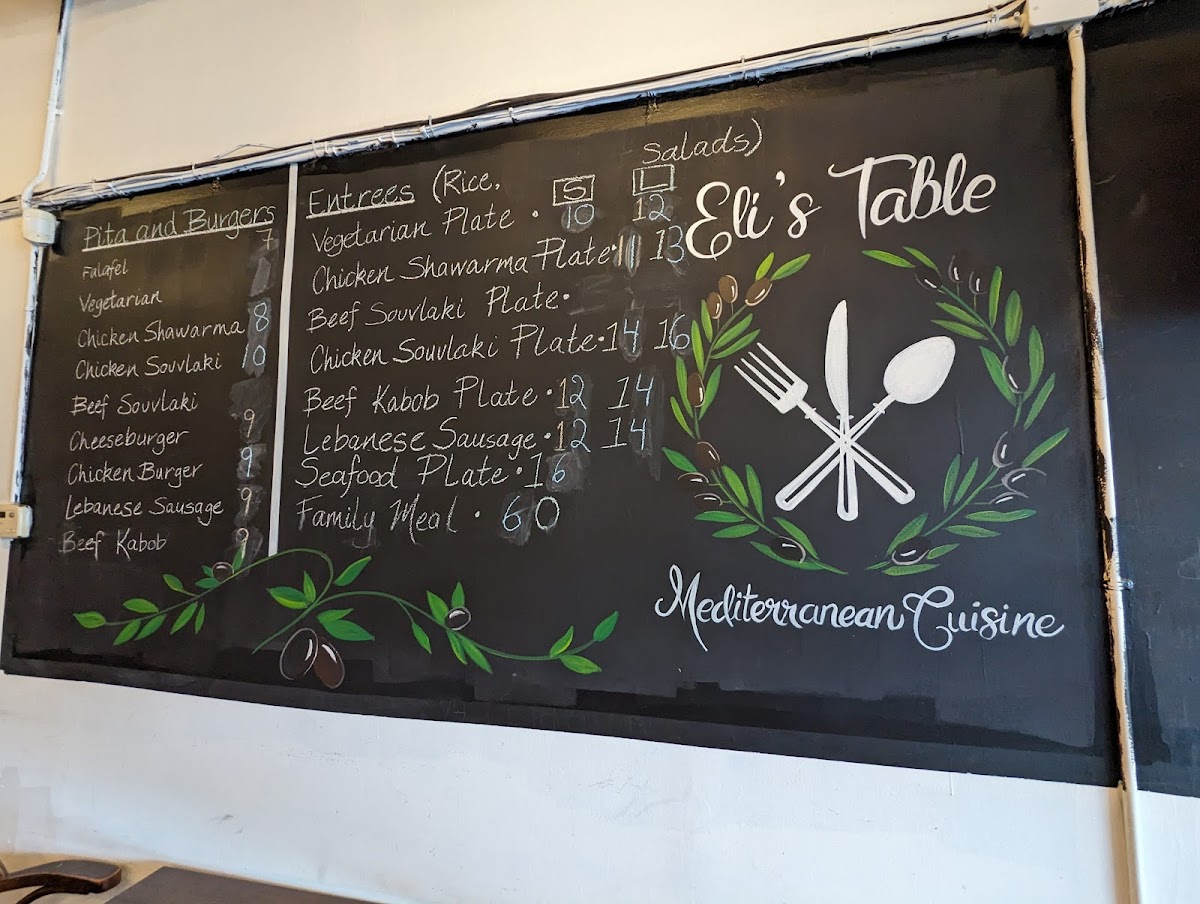 Pita and Burgers
7
Falafel
Vegetarian
Chicken Shawarma 8
Chicken Souvlaki 10
Beef Souvlaki
Cheeseburger 9
Chicken Burger 9
Lebanese Sausage 9
Beef Kabob 9
Entrees (Rice, Salads)
S L
Vegetarian Plate • 10 12
Chicken Shawarma Plate • 11 13
Beef Souvlaki Plate •
Chicken Souvlaki Plate • 14 16
Beef Kabob Plate • 12 14
Lebanese Sausage • 12 14
Seafood Plate • 16
Family Meal • 60
Eli's Table
Mediterranean Cuisine